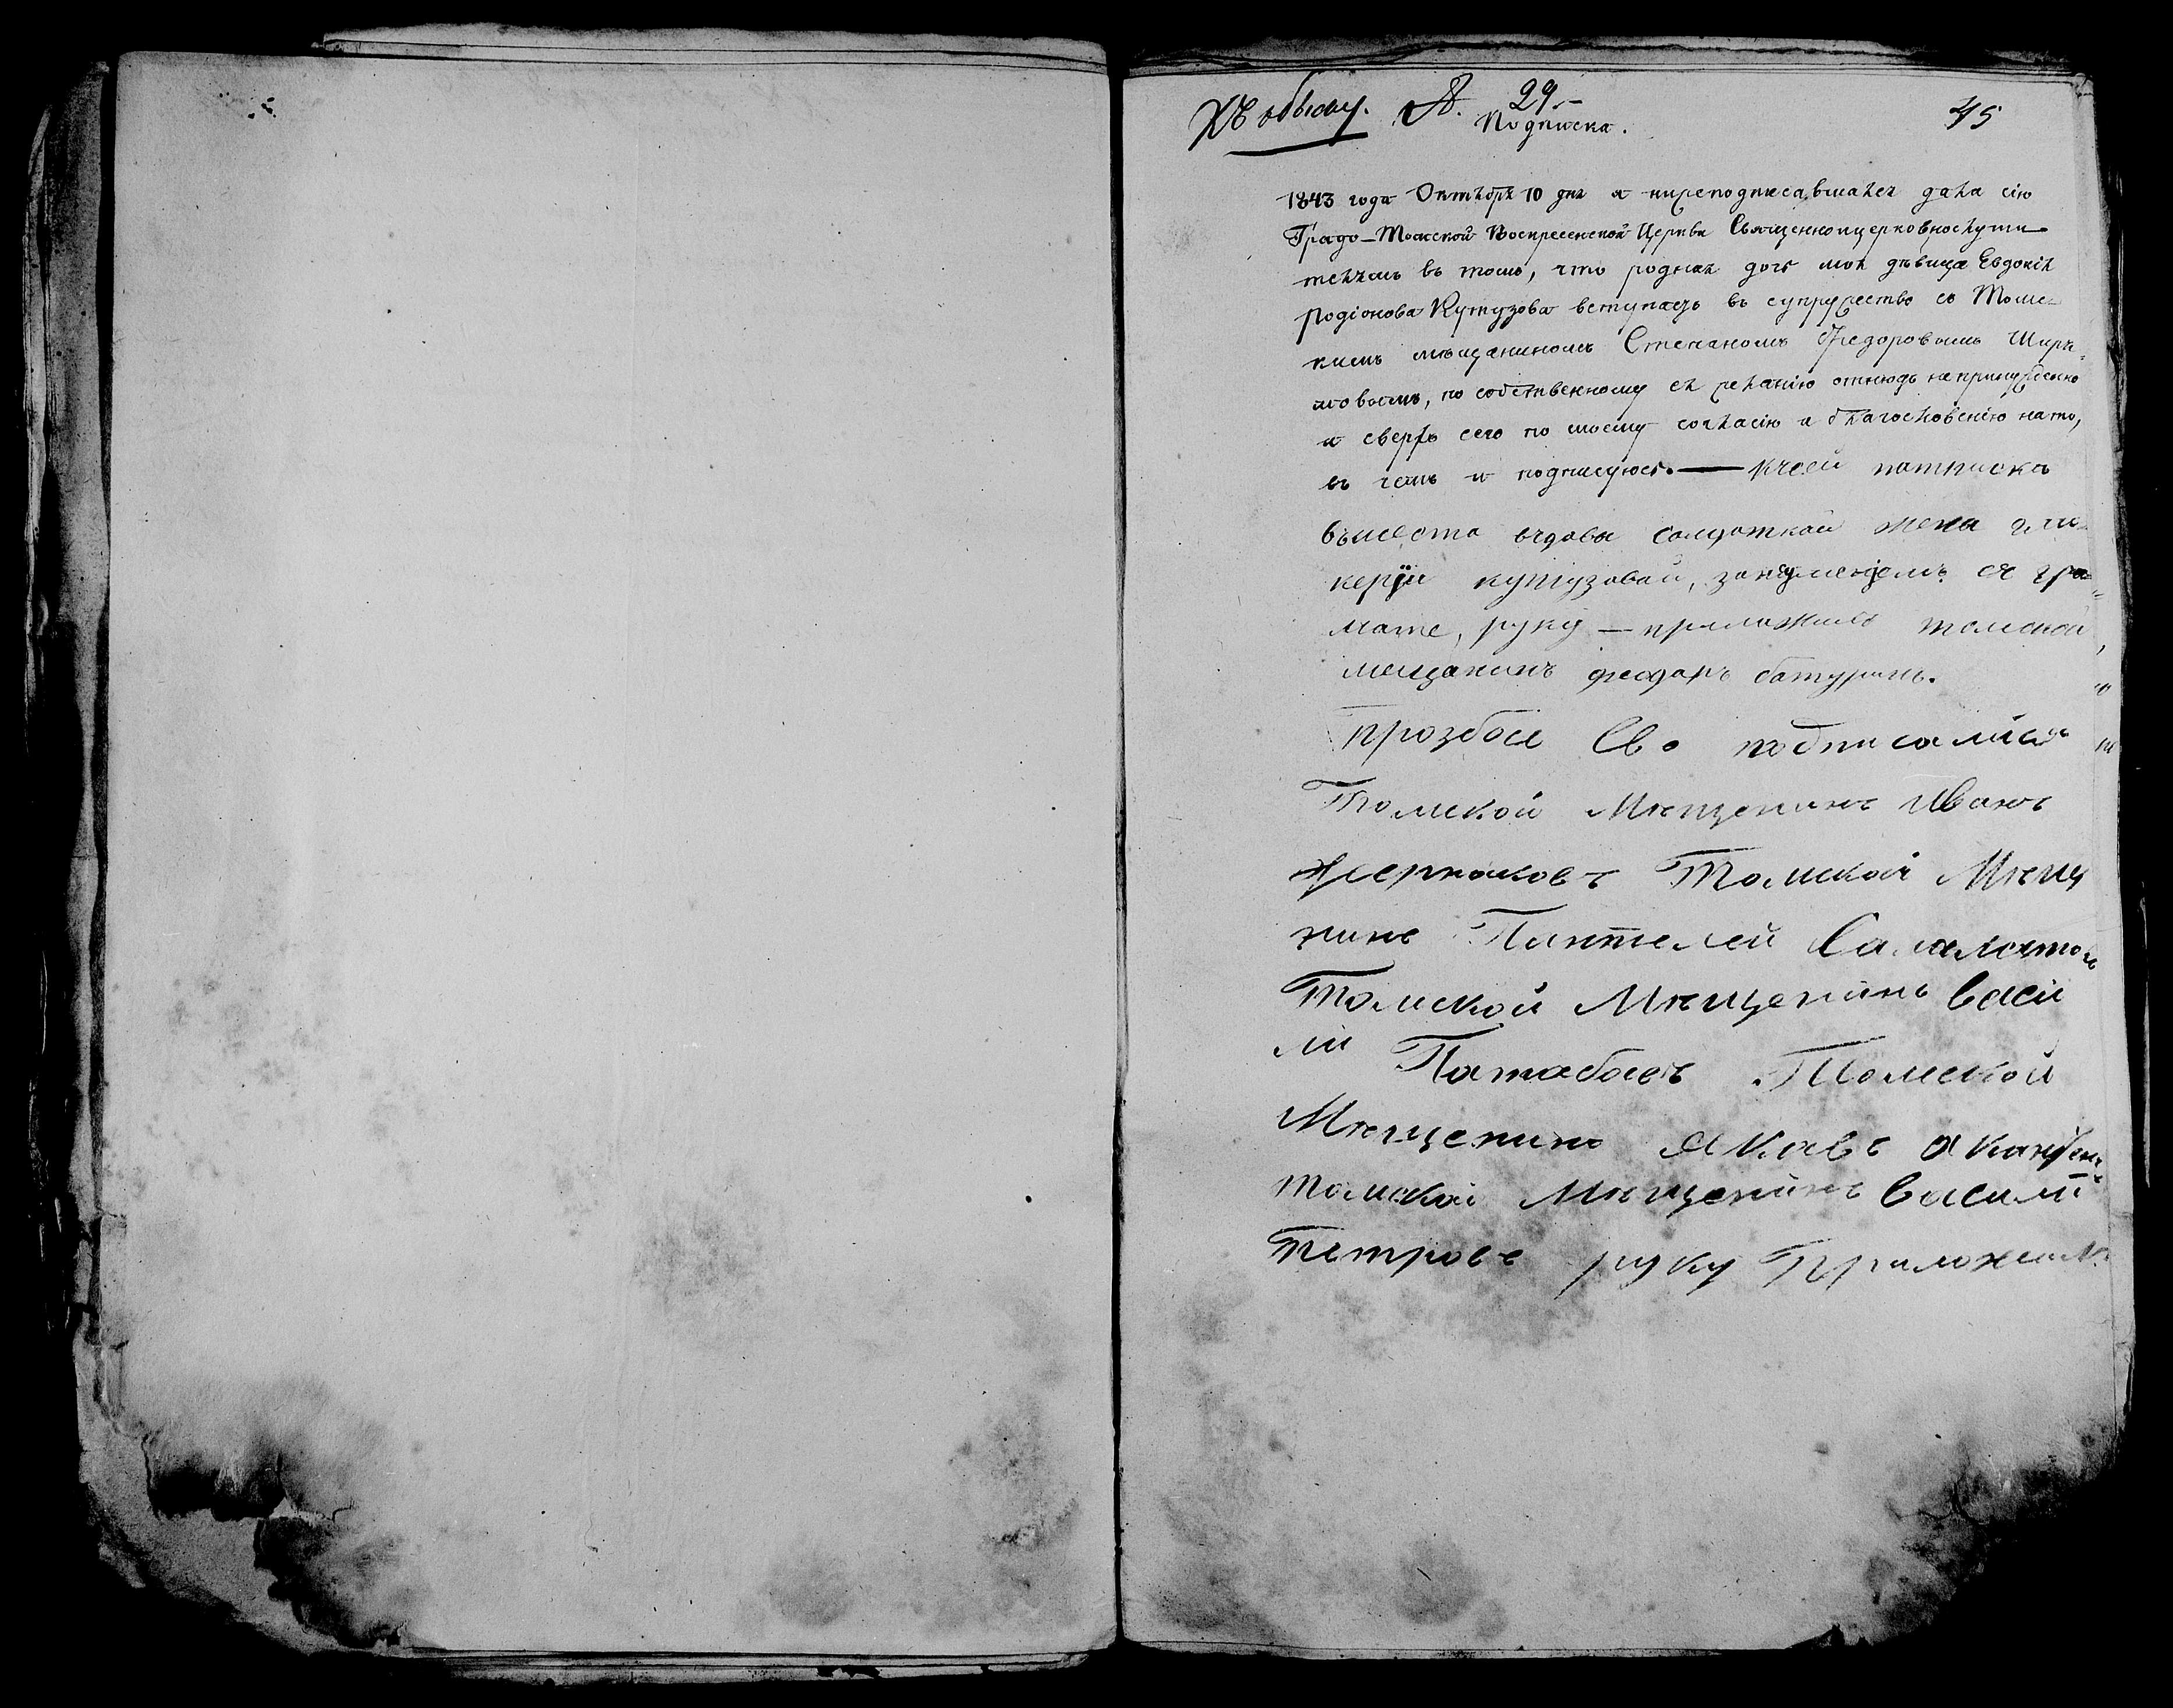 Къ обыску. А. 29.
Подписка.
45
1843 года Октября 10 дня я нижеподписавшаяся дала сію
Градо-Томской Воскресенской Церкви Священноицерковнослужи-
телямъ въ томъ, что родная дочь моя дѣвица Евдокія
Родіонова Кутузова вступаетъ въ супружество съ Томс-
кимъ мѣщаниномъ Степаномъ Федоровымъ Ширя-
мовымъ, по собственному ея желанію отнюдь непринужденно
и сверхъ сего по моему согласію и благословенію на то,
въ чемъ и подписуюсь. — Ксей патписки
въместо въдовы солдоткой жены глю-
керїи кутузовой, занеуменїемъ ея гра-
мате, руку — приложилъ томской
мещанинъ феодаръ батуринъ.
прозбое Ево подписалися
Томской Мѣщенинъ Иванъ
Томской Мѣщ
нинъ Пантелей Саламатовъ
Томской Мѣщенинъ васи
ли Патабаевъ Томской
Мѣщенинъ Якавъ
томской Мѣщенинъ василй
Петровъ руку Приложил